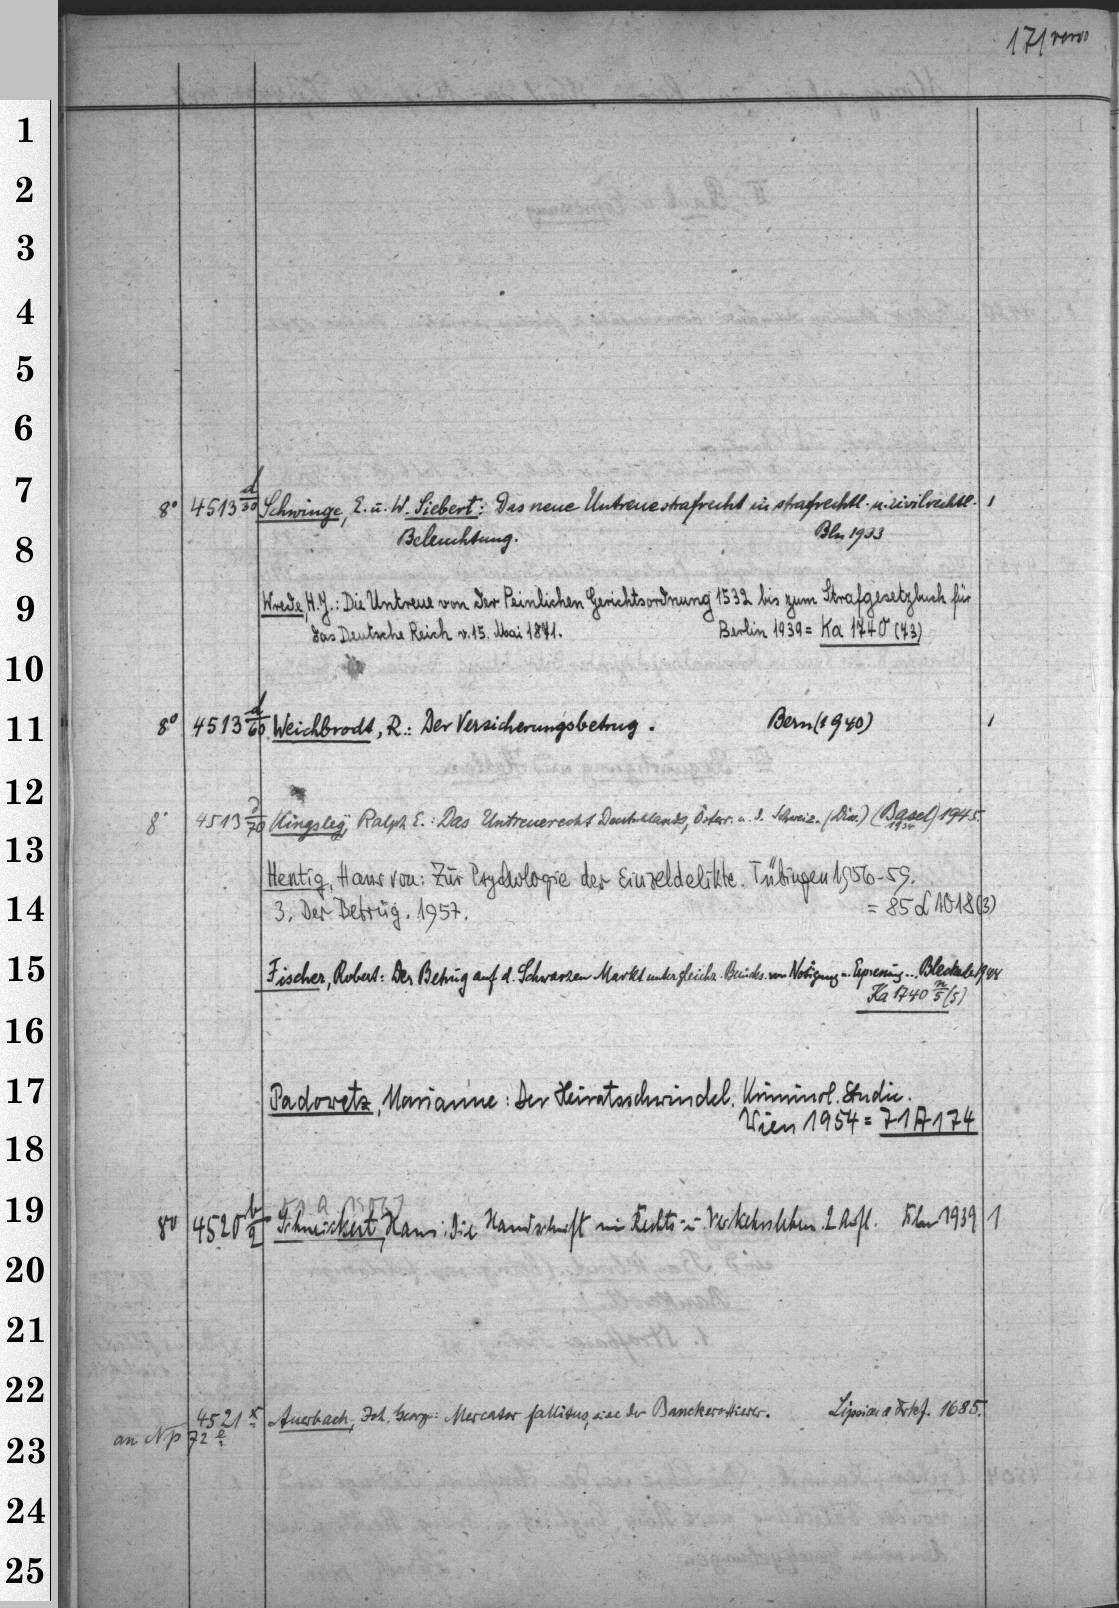 171 verso
1
2
3
4
5
6
7
8
9
10
11
12
13
14
15
16
17
18
19
20
21
22
23
24
25
8° 4513 d/50 Schwinge, E. u. W. Siebert: Das neue Untreuestrafrecht in strafrechtl. u. civilrechtl. 1
Beleuchtung. Bln 1933
Wrede, H.J.: Die Untreue von der Peinlichen Gerichtsordnung 1532 bis zum Strafgesetzbuch für
das Deutsche Reich v. 15. Mai 1871. Berlin 1939 = Ka 1740 (43)
8° 4513 d/60 Weichbrodt, R.: Der Versicherungsbetrug. Bern (1940) 1
8° 4513 d/70 Kingsley, Ralph E.: Das Untreuerecht Deutschlands, Österr. u. d. Schweiz. (Diss.) (Basel) 1945.
Hentig, Hans von: Zur Psychologie der Einzeldelikte. Tübingen 1956-59.
3. Der Betrug. 1957. = 85 d 1018(3)
Fischer, Robert: Der Betrug auf d. Schwarzen Markt unter gleichz. von Nötigung u. Erpressung
Ka 1740 n/5 (5)
Padowetz, Marianne: Der Heiratsschwindel. Kriminol. Studie.
Wien 1954 = 71 A 174
8° 4520 b/2 Schneickert, Hans: Die Handschrift im Rechts- u. Verkehrsleben. 2. Aufl. 1939 1
4521 Auerbach, Joh. Georg: Mercator fallitus, sive der Banckerottierer. Lipsiae & Frkf. 1685.
an Np 72